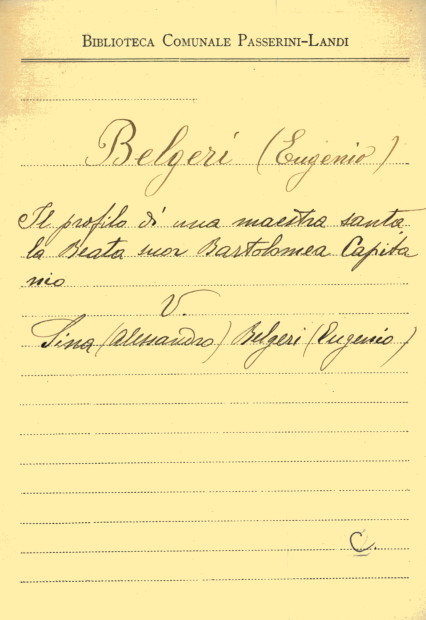 BIBLIOTECA COMUNALE PASSERINI-LANDI
Belgeri (Eugenio)
Il profilo di una maestra santa
la Beata suor Bartolomea Capita
nio
V.
Sina (Alessandro) Belgeri (Eugenio)
C.